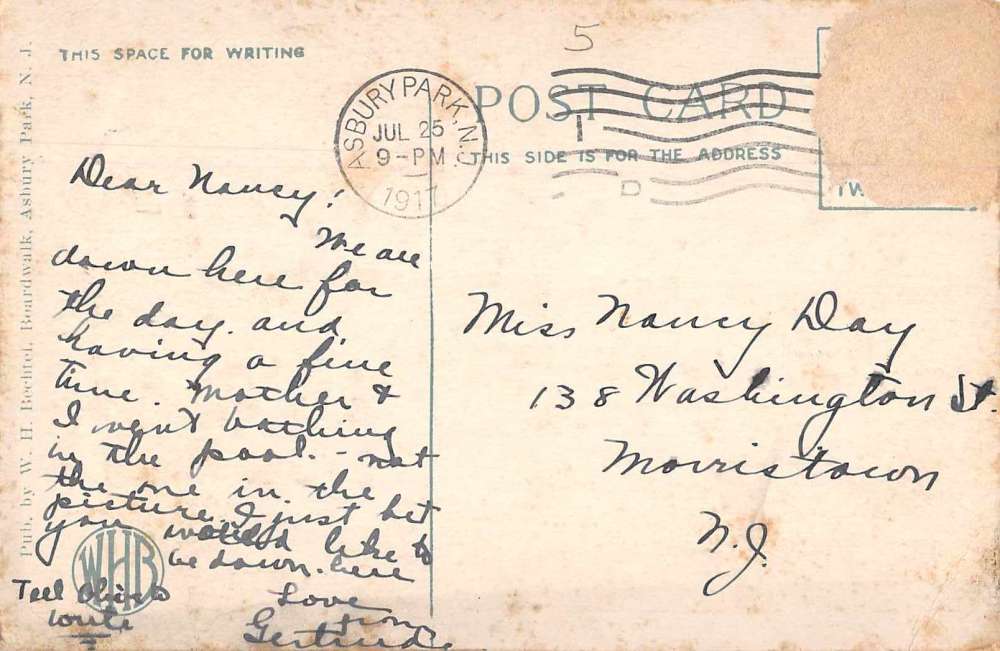 THIS SPACE FOR WRITING
5
ASBURY PARK, N.J.
JUL 25
9-PM
1917
POST CARD
THIS SIDE IS FOR THE ADDRESS
Pub. by W. H. Bechtel, Boardwalk, Asbury Park, N. J.
Dear Nancy!
We are
down here for
the day. and
having a fine
time. Mother &
I went bathing
in the pool. - not
the one in the
picture. I just bet
you would like to
be down here
Love
from
Gertrude
Tell
write
WHB
Miss Nancy Day
138 Washington St.
Morristown
N.J.